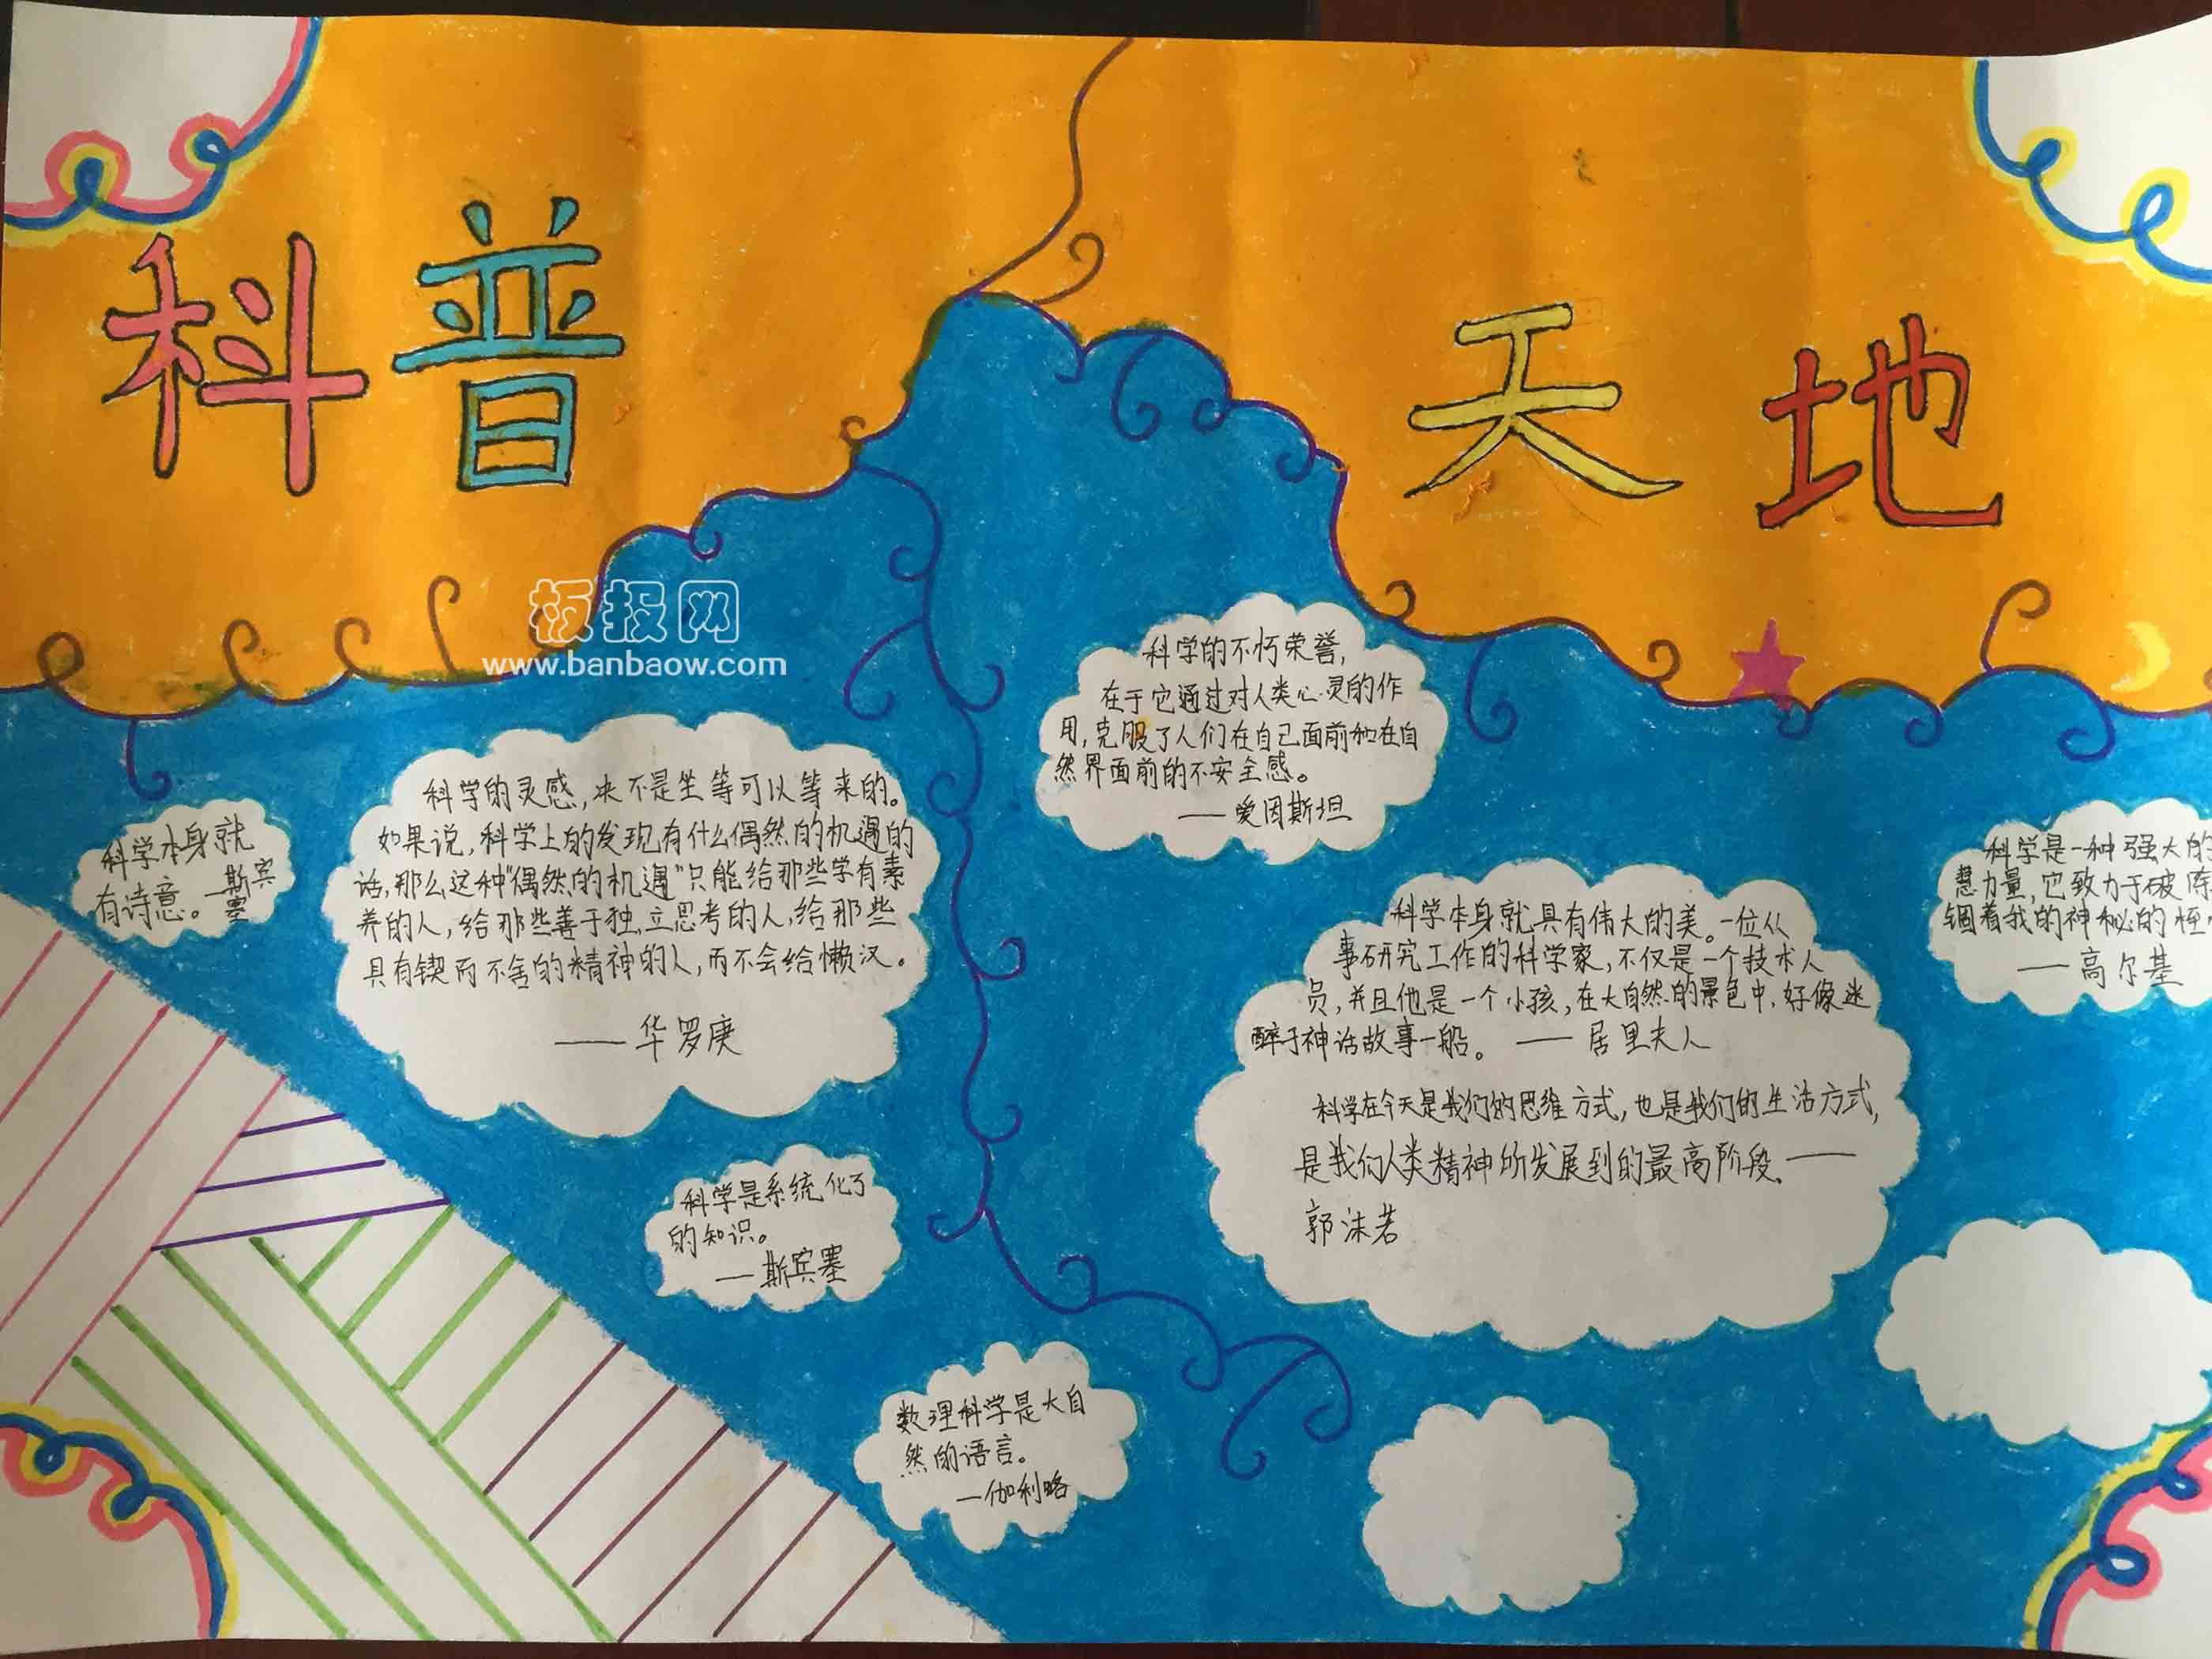 科普
天地
板报网
www.banbaow.com
科学的不朽荣誉,
在于它通过对人类心灵的作
用,克服了人们在自己面前和在自
然界面前的不安全感。
——爱因斯坦
科学的灵感,决不是坐等可以等来的。
如果说,科学上的发现有什么偶然的机遇的
话,那么这种“偶然的机遇”只能给那些学有素
养的人,给那些善于独立思考的人,给那些
具有锲而不舍的精神的人,而不会给懒汉。
——华罗庚
科学本身就
有诗意。—斯宾
塞
科学是一种强大的
慧力量,它致力于破除
锢着我的神秘的
——高尔基
科学本身就具有伟大的美。一位从
事研究工作的科学家,不仅是一个技术人
员,并且他是一个小孩,在大自然的景色中,好像迷
醉于神话故事一般。——居里夫人
科学在今天是我们的思维方式,也是我们的生活方式,
是我们人类精神所发展到的最高阶段。——
郭沫若
科学是系统化了
的知识。
——斯宾塞
数理科学是大自
然的语言。
—伽利略